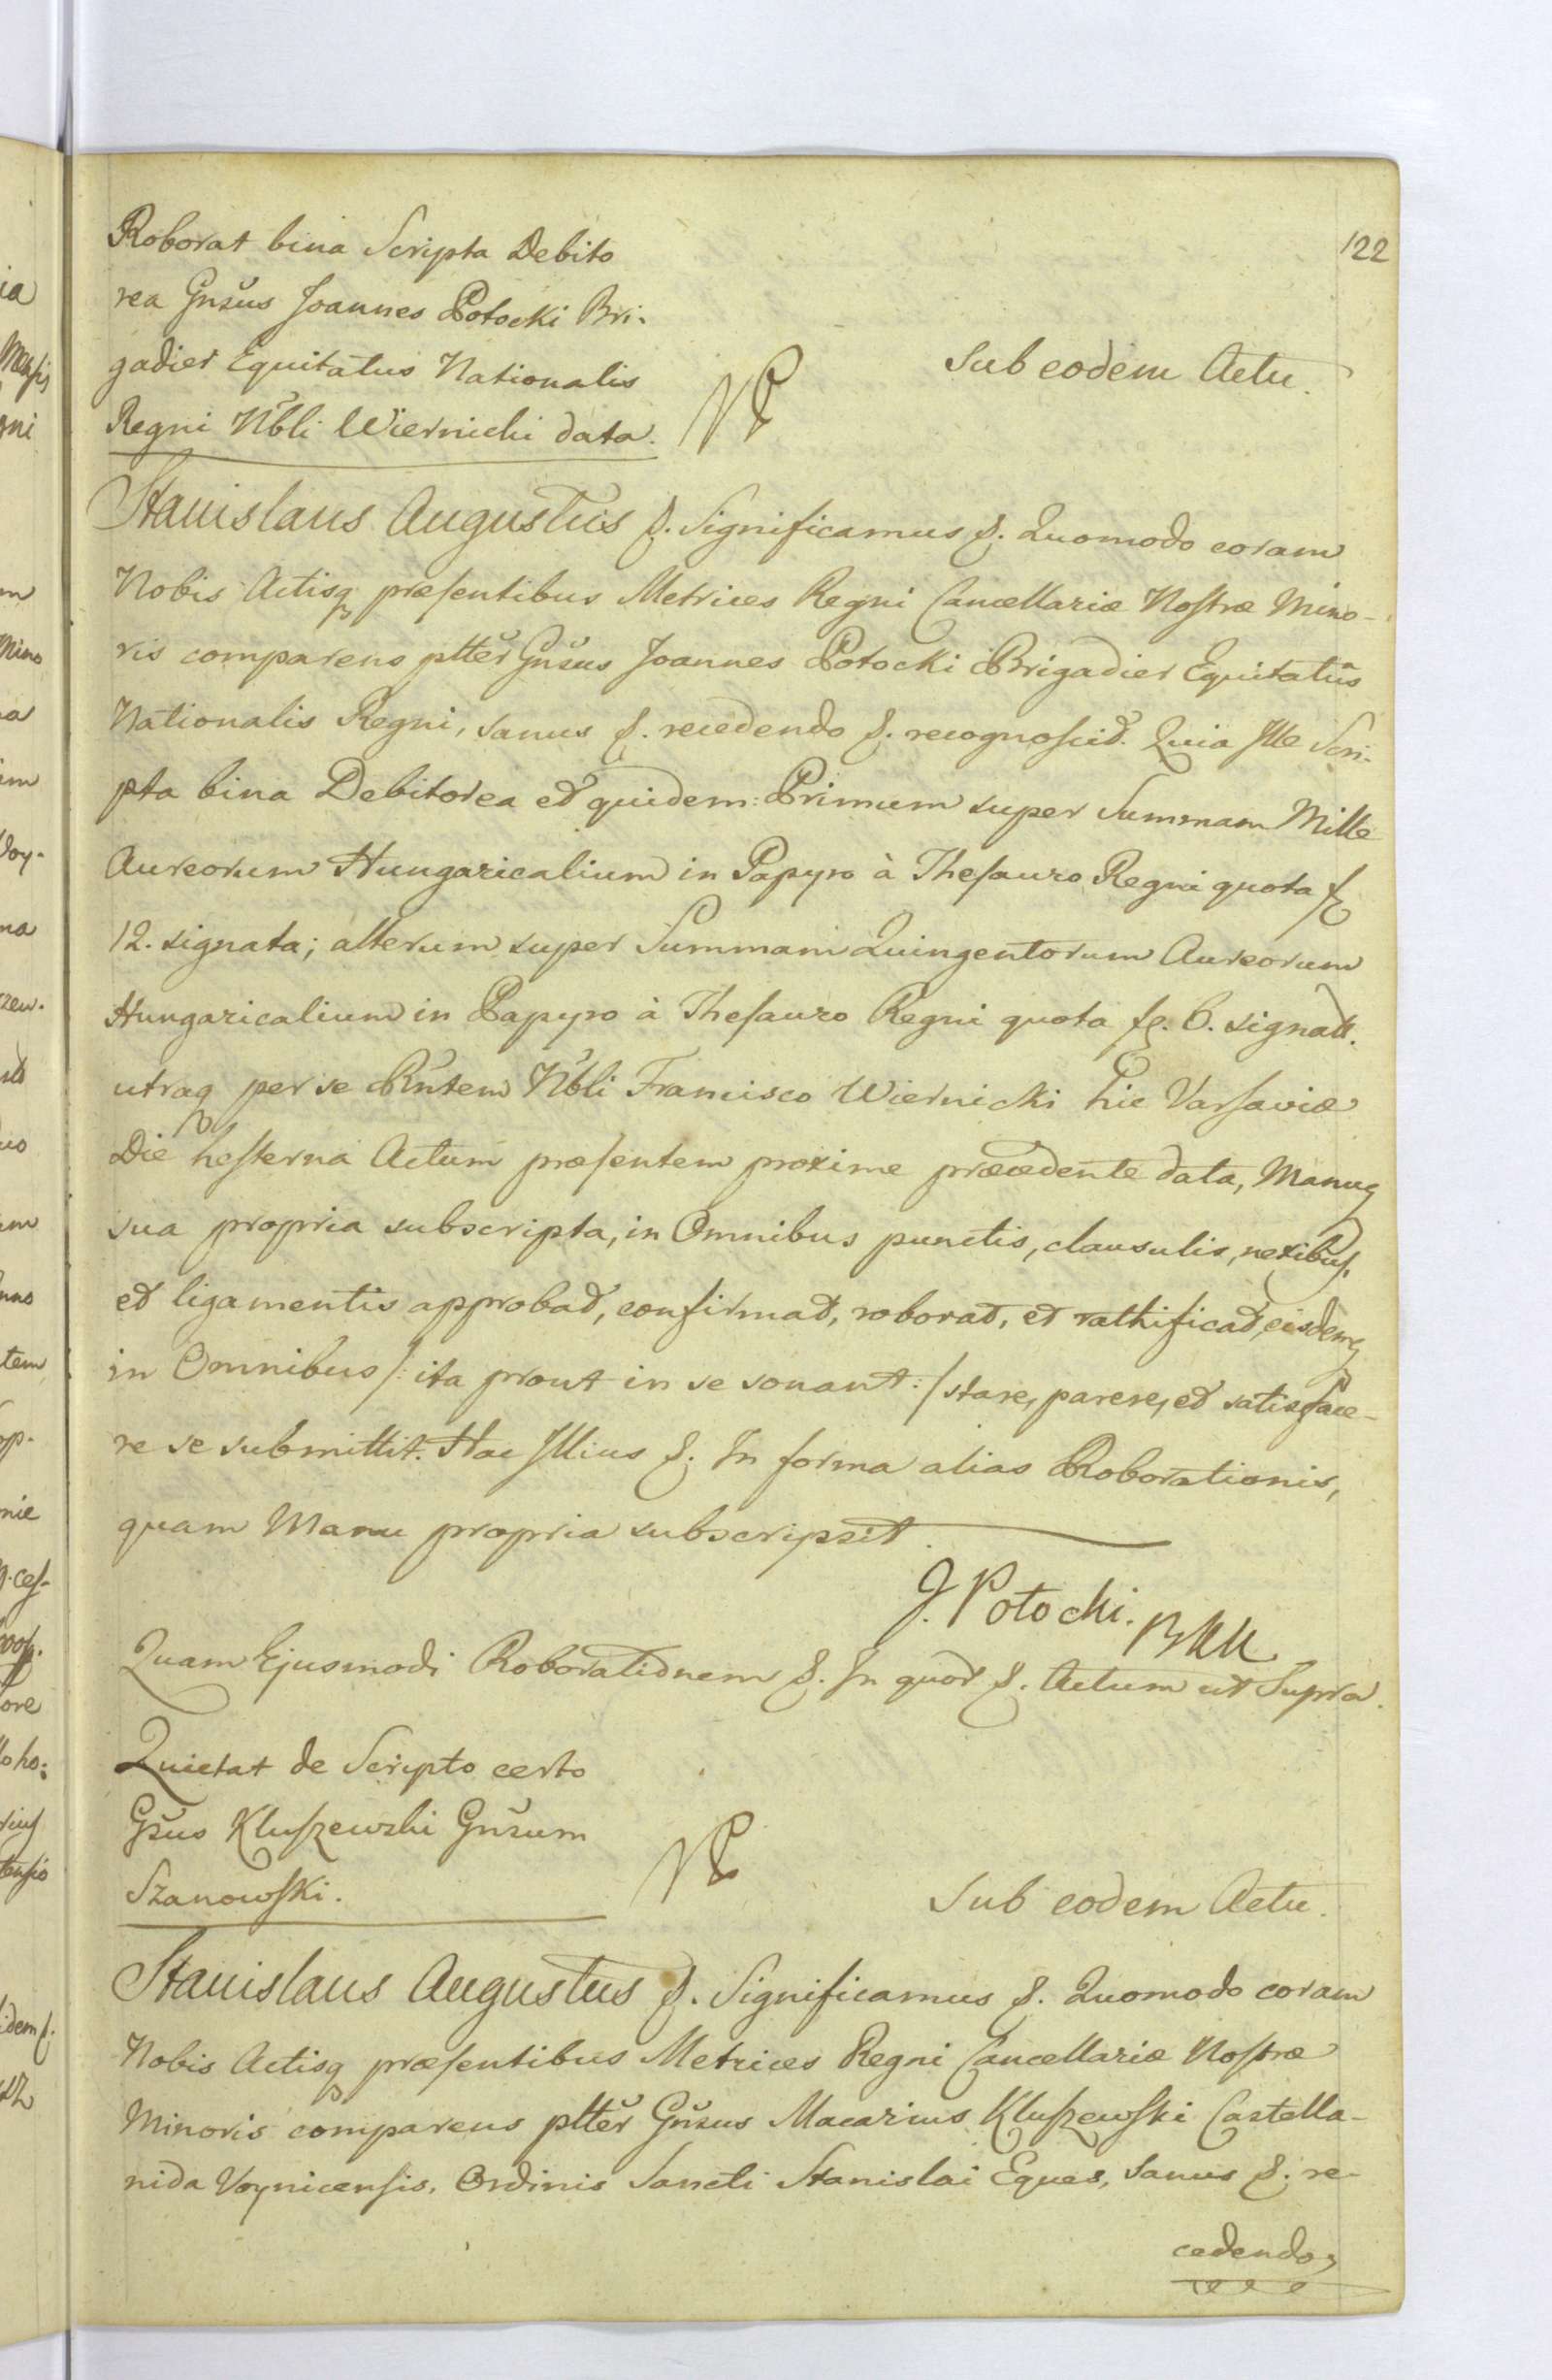 122
Roborat bina Scripta Debito
rea Gnsus Joannes Potocki Bri-
gadier Equitatus Nationalis
Regni Nbli Wiernicki data.
Sub eodem Actu.
Stanislaus Augustus &. Significamus &. Quomodo coram
Nobis Actisq præsentibus Metrices Regni Cancellariæ Nostræ Mino-
ris comparens pltter Gnsus Joannes Potocki Brigadier Equitatus
Nationalis Regni, sanus &. recedendo &. recognoscit. Quia Ille Scri-
pta bina Debitorea et quidem: Primum super Summam Mille
Aureorum Hungaricalium in Papyro à Thesauro Regni quota fl
12. signata; alterum super Summam Quingentorum Aureorum
Hungaricalium in Papyro à Thesauro Regni quota fl. 6. signatt.
utraq per se Rntem Nbli Francisco Wiernicki hic Varsaviæ
Die hesterna Actum præsentem proxime præcedente data, Manuq
sua propria subscripta, in Omnibus punctis, clausulis, nexibus,
et ligamentis approbat, confirmat, roborat, et rathificat, eisdemq
in Omnibus /: ita prout in se sonant :/ stare, parere, et satisface-
re se submittit. Hac Illius &. In forma alias Roborationis,
quam Manu propria subscripsit.
J. Potocki. BKN
Quam Ejusmodi Roborationem &. In quor &. Actum ut Supra.
Quietat de Scripto certo
Gsus Kluszewski Gnsum
Szanowski.
Sub eodem Actu.
Stanislaus Augustus &. Significamus &. Quomodo coram
Nobis Actisq præsentibus Metrices Regni Cancellariæ Nostræ
Minoris comparens pltter Gnsus Macarius Kluszewski Castella-
nida Voynicensis, Ordinis Sancti Stanislai Eques, sanus &. re-
cedendo,